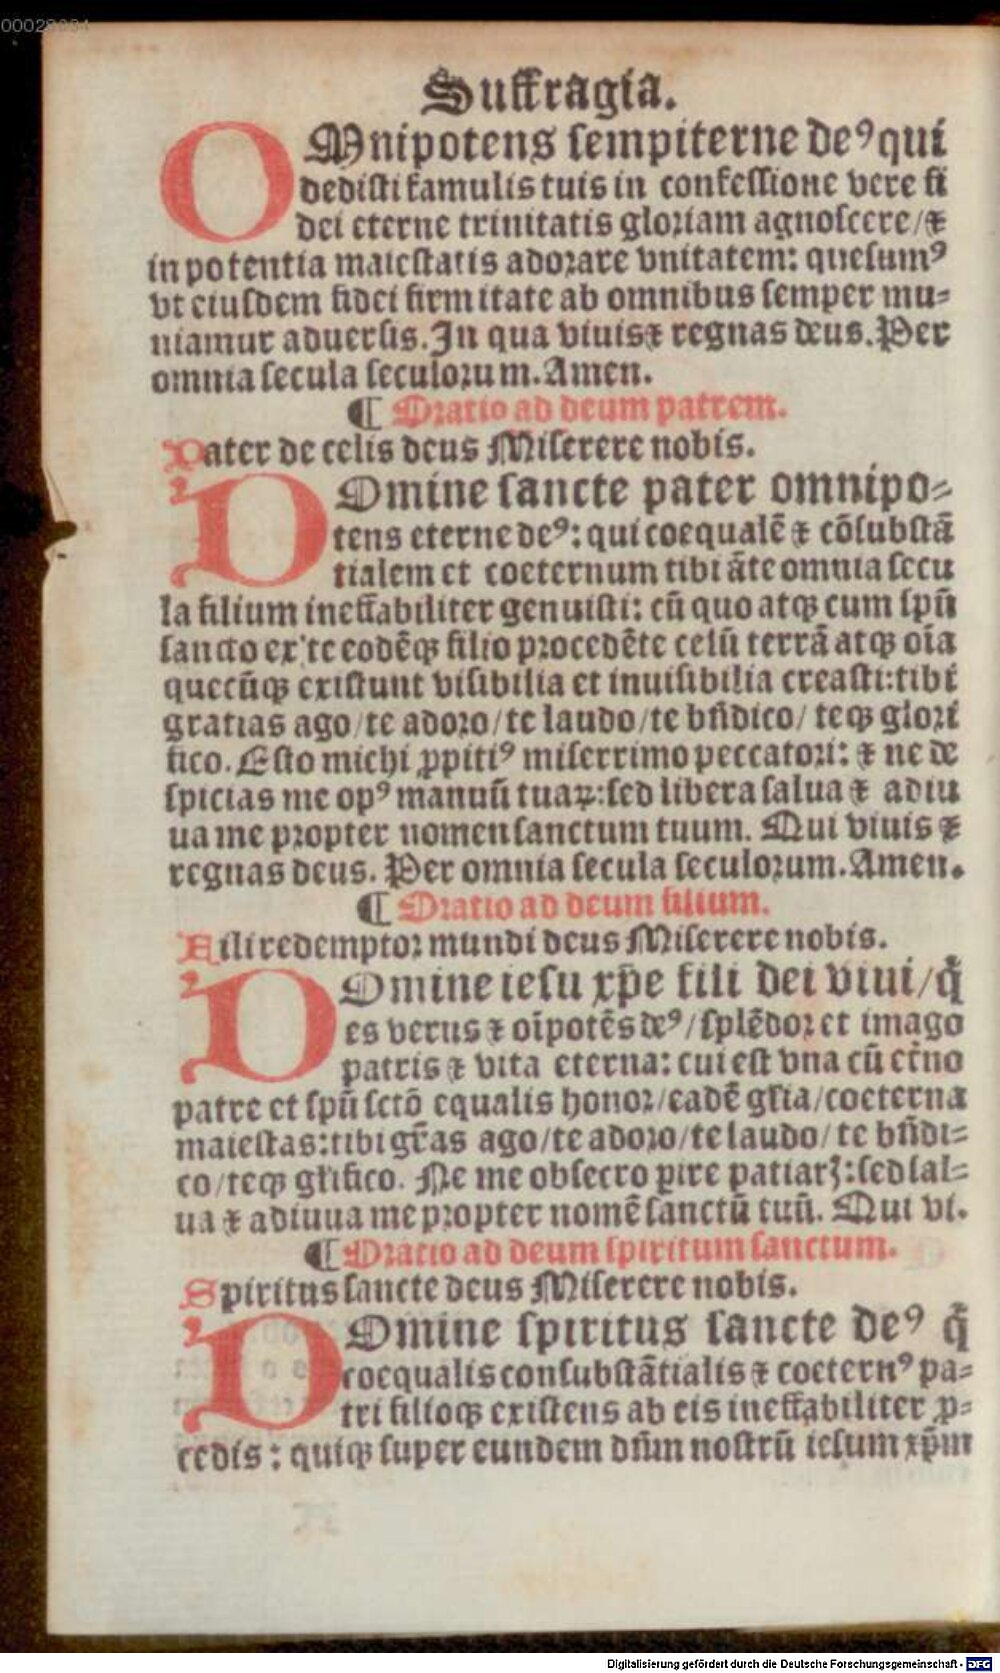 00029884
Suffragia.
OMnipotens sempiterne deꝰ qui
dedisti famulis tuis in confessione vere fi
dei eterne trinitatis gloriam agnoscere/⁊
in potentia maiestatis adorare vnitatem: quesumꝰ
vt eiusdem fidei firmitate ab omnibus semper mu⸗
niamur aduersis. In qua viuis ⁊ regnas deus. Per
omnia secula seculorum. Amen.
¶ Oratio ad deum patrem.
Pater de celis deus Miserere nobis.
DOmine sancte pater omnipo⸗
tens eterne deꝰ: qui coequalē ⁊ cōsubstā
tialem et coeternum tibi āte omnia secu
la filium ineffabiliter genuisti: cū quo atqꝫ cum spū
sancto ex te eodēqꝫ filio procedēte celū terrā atqꝫ oīa
quecūqꝫ existunt visibilia et inuisibilia creasti: tibi
gratias ago/te adoro/te laudo/te bn̄dico/ teqꝫ glori
fico. Esto michi ꝓpitiꝰ miserrimo peccatori: ⁊ ne de
spicias me opꝰ manuū tuaꝝ: sed libera salua ⁊ adiu
ua me propter nomen sanctum tuum. Qui viuis ⁊
regnas deus. Per omnia secula seculorum. Amen.
¶ Oratio ad deum filium.
Fili redemptor mundi deus Miserere nobis.
DOmine iesu xp̄e fili dei viui/q̄
es verus ⁊ oīpotēs deꝰ/splēdor et imago
patris ⁊ vita eterna: cui est vna cū et̄no
patre et spū sctō equalis honor/eadē gl̄ia/coeterna
maiestas: tibi gr̄as ago/te adoro/te laudo/ te bn̄di⸗
co/teqꝫ gl̄ifico. Ne me obsecro ꝑire patiarꝫ: sed sal⸗
ua ⁊ adiuua me propter nomē sanctū tuū. Qui vi.
¶ Oratio ad deum spiritum sanctum.
Spiritus sancte deus Miserere nobis.
DOmine spiritus sancte deꝰ q̄
coequalis consubstātialis ⁊ coeternꝰ pa⸗
tri filioqꝫ existens ab eis ineffabiliter ꝓ⸗
cedis: quiqꝫ super eundem dn̄m nostrū iesum xp̄m
Digitalisierung gefördert durch die Deutsche Forschungsgemeinschaft - DFG